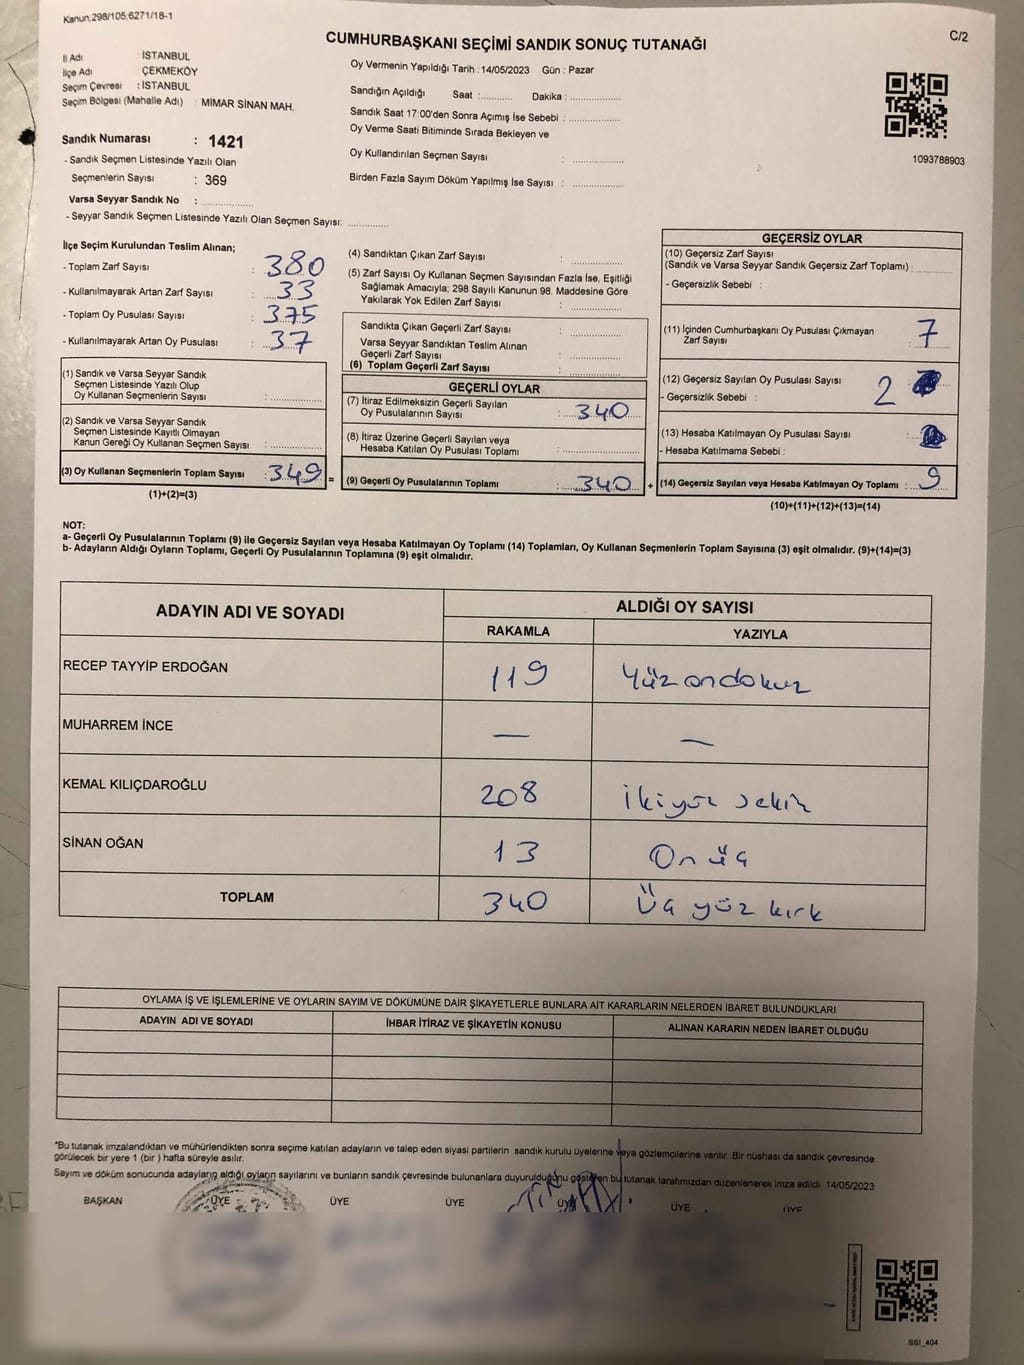 Kanun,298/105,6271/18-1
C/2
CUMHURBAŞKANI SEÇİMİ SANDIK SONUÇ TUTANAĞI
İl Adı : İSTANBUL
İlçe Adı : ÇEKMEKÖY
Seçim Çevresi : İSTANBUL
Seçim Bölgesi (Mahalle Adı) : MİMAR SİNAN MAH.
Sandık Numarası : 1421
- Sandık Seçmen Listesinde Yazılı Olan
Seçmenlerin Sayısı : 369
Varsa Seyyar Sandık No :
- Seyyar Sandık Seçmen Listesinde Yazılı Olan Seçmen Sayısı:
Oy Vermenin Yapıldığı Tarih : 14/05/2023 Gün : Pazar
Sandığın Açıldığı Saat : Dakika :
Sandık Saat 17:00'den Sonra Açımış İse Sebebi :
Oy Verme Saati Bitiminde Sırada Bekleyen ve
Oy Kullandırılan Seçmen Sayısı :
Birden Fazla Sayım Döküm Yapılmış İse Sayısı :
1093788903
İlçe Seçim Kurulundan Teslim Alınan;
- Toplam Zarf Sayısı : 380
- Kullanılmayarak Artan Zarf Sayısı : 33
- Toplam Oy Pusulası Sayısı : 375
- Kullanılmayarak Artan Oy Pusulası : 37
(1) Sandık ve Varsa Seyyar Sandık
Seçmen Listesinde Yazılı Olup
Oy Kullanan Seçmenlerin Sayısı :
(2) Sandık ve Varsa Seyyar Sandık
Seçmen Listesinde Kayıtlı Olmayan
Kanun Gereği Oy Kullanan Seçmen Sayısı :
(3) Oy Kullanan Seçmenlerin Toplam Sayısı : 349 =
(1)+(2)=(3)
(4) Sandıktan Çıkan Zarf Sayısı :
(5) Zarf Sayısı Oy Kullanan Seçmen Sayısından Fazla İse, Eşitliği
Sağlamak Amacıyla; 298 Sayılı Kanunun 98. Maddesine Göre
Yakılarak Yok Edilen Zarf Sayısı :
Sandıkta Çıkan Geçerli Zarf Sayısı :
Varsa Seyyar Sandıktan Teslim Alınan
Geçerli Zarf Sayısı :
(6) Toplam Geçerli Zarf Sayısı :
GEÇERLİ OYLAR
(7) İtiraz Edilmeksizin Geçerli Sayılan
Oy Pusulalarının Sayısı : 340
(8) İtiraz Üzerine Geçerli Sayılan veya
Hesaba Katılan Oy Pusulası Toplamı :
(9) Geçerli Oy Pusulalarının Toplamı : 340 +
GEÇERSİZ OYLAR
(10) Geçersiz Zarf Sayısı
(Sandık ve Varsa Seyyar Sandık Geçersiz Zarf Toplamı) :
- Geçersizlik Sebebi :
(11) İçinden Cumhurbaşkanı Oy Pusulası Çıkmayan
Zarf Sayısı : 7
(12) Geçersiz Sayılan Oy Pusulası Sayısı : 2
- Geçersizlik Sebebi :
(13) Hesaba Katılmayan Oy Pusulası Sayısı :
- Hesaba Katılmama Sebebi :
(14) Geçersiz Sayılan veya Hesaba Katılmayan Oy Toplamı : 9
(10)+(11)+(12)+(13)=(14)
NOT:
a- Geçerli Oy Pusulalarının Toplamı (9) ile Geçersiz Sayılan veya Hesaba Katılmayan Oy Toplamı (14) Toplamları, Oy Kullanan Seçmenlerin Toplam Sayısına (3) eşit olmalıdır. (9)+(14)=(3)
b- Adayların Aldığı Oyların Toplamı, Geçerli Oy Pusulalarının Toplamına (9) eşit olmalıdır.
ADAYIN ADI VE SOYADI ALDIĞI OY SAYISI
RAKAMLA YAZIYLA
RECEP TAYYİP ERDOĞAN 119 Yüz ondokuz
MUHARREM İNCE — —
KEMAL KILIÇDAROĞLU 208 İkiyüz sekiz
SİNAN OĞAN 13 On üç
TOPLAM 340 Üç yüz kırk
OYLAMA İŞ VE İŞLEMLERİNE VE OYLARIN SAYIM VE DÖKÜMÜNE DAİR ŞİKAYETLERLE BUNLARA AİT KARARLARIN NELERDEN İBARET BULUNDUKLARI
ADAYIN ADI VE SOYADI İHBAR İTİRAZ VE ŞİKAYETİN KONUSU ALINAN KARARIN NEDEN İBARET OLDUĞU
*Bu tutanak imzalandıktan ve mühürlendikten sonra seçime katılan adayların ve talep eden siyasi partilerin sandık kurulu üyelerine veya gözlemcilerine verilir. Bir nüshası da sandık çevresinde
görülecek bir yere 1 (bir ) hafta süreyle asılır.
Sayım ve döküm sonucunda adayların aldığı oyların sayılarını ve bunların sandık çevresinde bulunanlara duyurulduğunu gösteren bu tutanak tarafımızdan düzenlenerek imza edildi. 14/05/2023
BAŞKAN ÜYE ÜYE ÜYE ÜYE ÜYE ÜYE
SSI_404